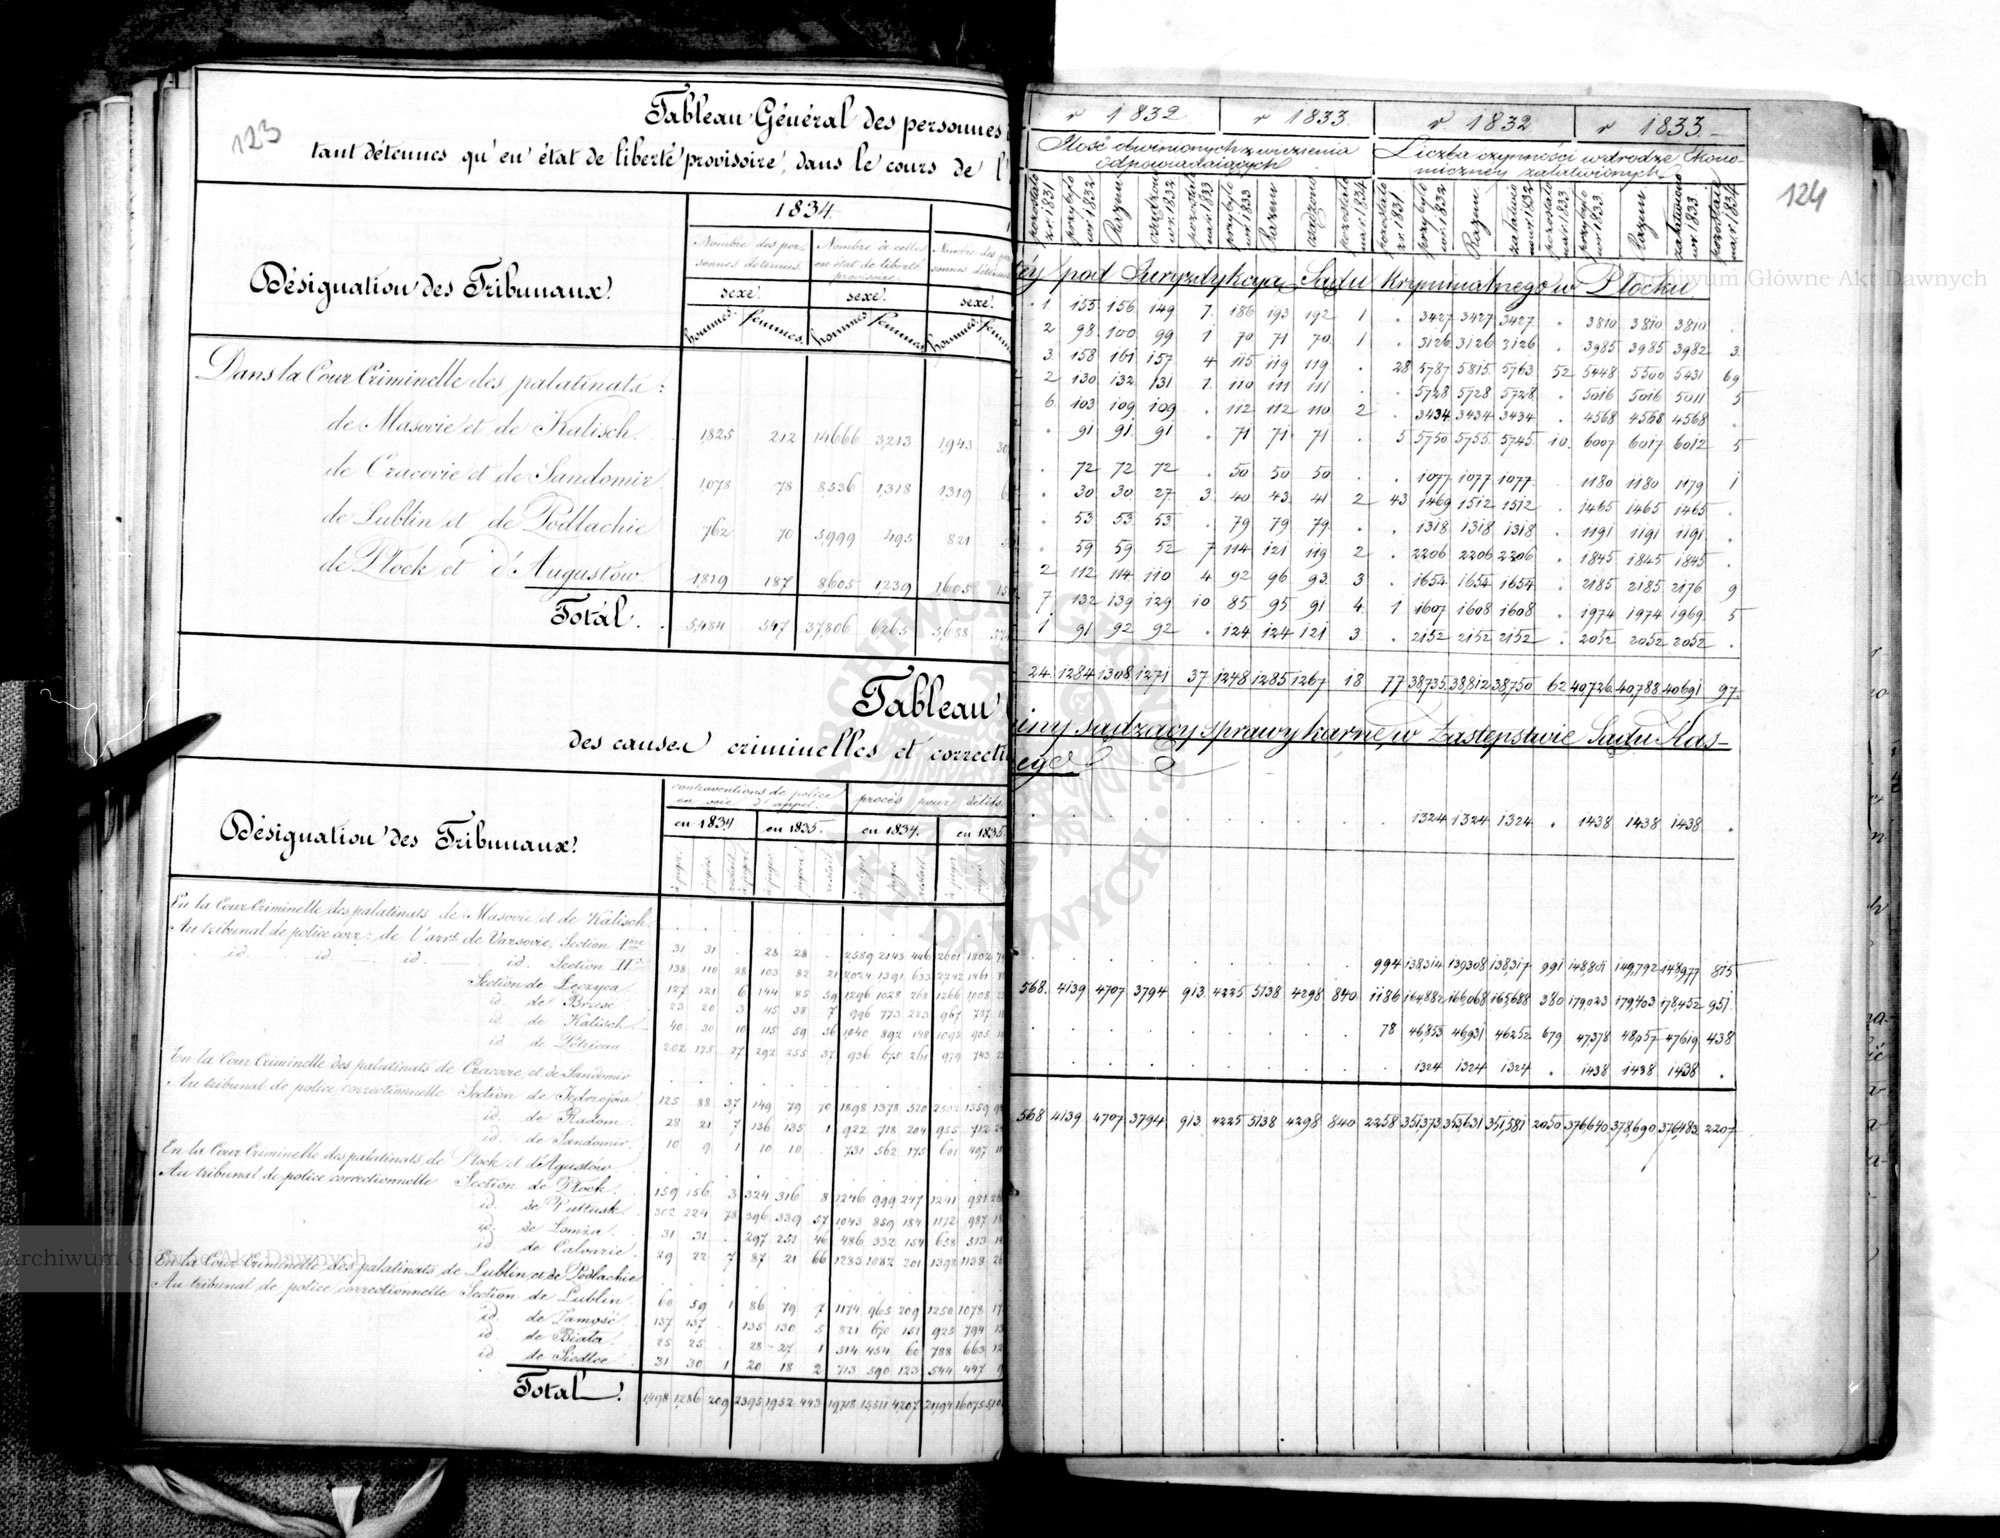 123
Tableau Général des personnes
tant détenues qu'en état de liberté provisoire, dans le cours de l'
Désignation des Tribunaux.
1834.
Nombre des personnes détenues.
Nombre de celles en état de liberté provisoire.
Nombre des
sexe. sexe. sexe.
hommes. femmes. hommes femmes hommes
Dans la Cour Criminelle des palatinats :
de Masovie et de Kalisch. 1,825 212 14,666 3,213 1,943
de Cracovie et de Sandomir. 1,078 78 8,536 1,318 1319
de Lublin et de Podlachie 762 70 5,999 495 821
de Plock et d'Augustow. 1819 187 8605 1239 1605
Total. 5,484 547 37,806 6265 5,688
Tableau
des causes criminelles et correcti
Désignation des Tribunaux.
contraventions de police en voie d'appel. procès pour délits
en 1834 en 1835. en 1834. en 1835
En la Cour Criminelle des palatinats de Masovie et de Kalisch.
Au tribunal de police corr: de l'arrt de Varsovie, Section Ire 31 31 . 28 28 . 2589 2143 446 2601 1802
id. id. id. id. Section II 138 110 28 103 82 21 2024 1391 633 2242 1461
Section de Leczyca 127 121 6 144 85 59 1296 1028 268 1266 1008
id. de Brzesc 23 20 3 45 38 7 996 773 223 967 737
id. de Kalisch 40 30 10 115 59 56 1040 892 148 1093 905
id. de Pétricau 202 175 27 292 255 37 936 675 261 979 743
En la Cour Criminelle des palatinats de Cracovie et de Sandomir
Au tribunal de police correctionnelle Section de Jedrzejów 125 88 37 149 79 70 1898 1378 520 2502 1559
id. de Radom 28 21 7 136 135 1 922 718 204 955 712
id. de Sandomir. 10 9 1 10 10 . 731 562 175 601 497
En la Cour Criminelle des palatinats de Plock et d'Agustów
Au tribunal de police correctionnelle Section de Plock. 159 156 3 324 316 8 1246 999 247 1241 981
id. de Pultusk 302 224 78 396 339 57 1043 859 184 1172 987
id. de Lomza. 31 31 . 297 251 46 486 332 154 658 513
id. de Calvarie. 29 22 7 87 21 66 1283 1082 201 1398 1138
En la Cour Criminelle des palatinats de Lublin et de Podlachie
Au tribunal de police correctionnelle Section de Lublin. 60 59 1 86 79 7 1174 965 209 1250 1078
id. de Zamość 137 137 . 135 130 5 821 670 151 925 794
id. de Biała 25 25 . 28 27 1 514 454 60 788 663
id. de Siedlce 31 30 1 20 18 2 713 590 123 544 447
Total. 1,498 1,286 209 2395 1,952 443 19,718 15,511 4,207 21,194 16,075
124
r 1832 r 1833. r. 1832 r 1833.
Ilość obwinionych z więzienia odpowiadających
Liczba czynności w drodze Ekonomiczney załatwionych
pozostało z r. 1831 przybyło w r. 1832 Razem osądzono w r. 1832 pozostało na r. 1833 przybyło w r. 1833 Razem osądzono pozostało na r. 1834 pozostało z r. 1831 przybyło w r. 1832 Razem załatwiono w r. 1832 pozostało na r. 1833 przybyło w r. 1833 Razem załatwiono w r. 1833 pozostaie na r. 1834
éy pod Juryzdykcyą Sądu Kryminalnego w Płocku
1. 155 156 149 7. 186 193 192 1 . 3427 3427 3427 . 3810 3810 3810 .
2 98 100 99 1 70 71 70 1 . 3126 3126 3126 . 3985 3985 3982 3
3. 158 161 157 4 115 119 119 . 28 5787 5815 5763 52 5448 5500 5431 69
2 130 132 131 1 110 111 111 . . 5728 5728 5728 . 5016 5016 5011 5
6. 103 109 109 . 112 112 110 2 . 3434 3434 3434 . 4568 4568 4568 .
. 91 91 91 . 71 71 71 . 5 5750 5755 5745 10. 6007 6017 6012 5
. 72 72 72 . 50 50 50 . . 1077 1077 1077 . 1180 1180 1179 1
. 30 30 27 3 40 43 41 2 43 1469 1512 1512 . 1465 1465 1465 .
. 53 53 53 . 79 79 79 . . 1318 1318 1318 . 1191 1191 1191 .
. 59 59 52 7 114 121 119 2 . 2206 2206 2206 . 1845 1845 1845 .
2 112 114 110 4 92 96 93 3 . 1654 1654 1654 . 2185 2185 2176 9
7 132 139 129 10 85 95 91 4 1 1607 1608 1608 . 1974 1974 1969 5
1 91 92 92 . 124 124 121 3 . 2152 2152 2152 . 2052 2052 2052 .
24. 1284 1308 1271 37 1248 1285 1267 18 77 38,735 38,812 38,750 62 40,726 40,788 40,691 97.
iny sądzący sprawy karne, w Zastępstwie Sądu Kas-
cyi
1324 1324 1324 . 1438 1438 1438 .
994 138314 139308 138317 991 148,801 149,792 148,977 815
568. 4139 4707 3794 913. 4225 5138 4298 840 1186 164,882 166,068 165,688 380 179,023 179,403 178,452 951
78 46,853 46,931 46252 679 47,378 48,057 47619 438
1324 1324 1324 . 1438 1438 1438 .
568 4139 4707 3794 913. 4225 5138 4298 840 2258 351,373 353,631 351,581 2050 376,640 378,690 376,483 2207
Archiwum Główne Akt Dawnych
Archiwum Główne Akt Dawnych